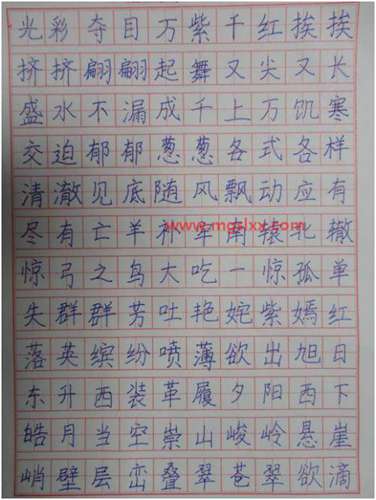 光彩夺目万紫千红挨挨
挤挤翩翩起舞又尖又长
盛水不漏成千上万饥寒
交迫郁郁葱葱各式各样
清澈见底随风飘动应有
尽有亡羊补牢南辕北辙
www.mgslxx.com
惊弓之鸟大吃一惊孤单
失群群芳吐艳姹紫嫣红
落英缤纷喷薄欲出旭日
东升西装革履夕阳西下
皓月当空崇山峻岭悬崖
峭壁层峦叠翠苍翠欲滴